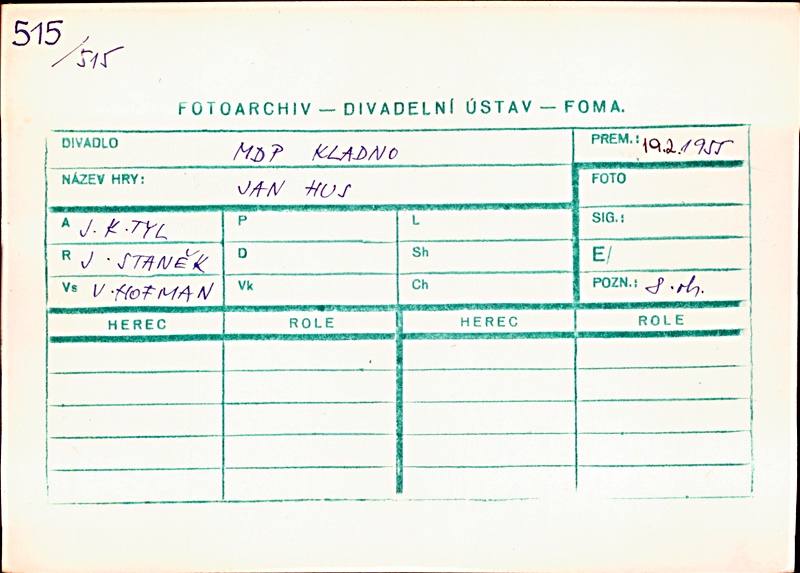 515
/515
FOTOARCHIV — DIVADELNÍ ÚSTAV — FOMA.
DIVADLO MDP KLADNO PREM.: 19.2.1955
NÁZEV HRY: JAN HUS FOTO
A J.K.TYL P L SIG.:
R J. STANĚK D Sh E/
Vs V.HOFMAN Vk Ch POZN.: 8.
HEREC ROLE HEREC ROLE